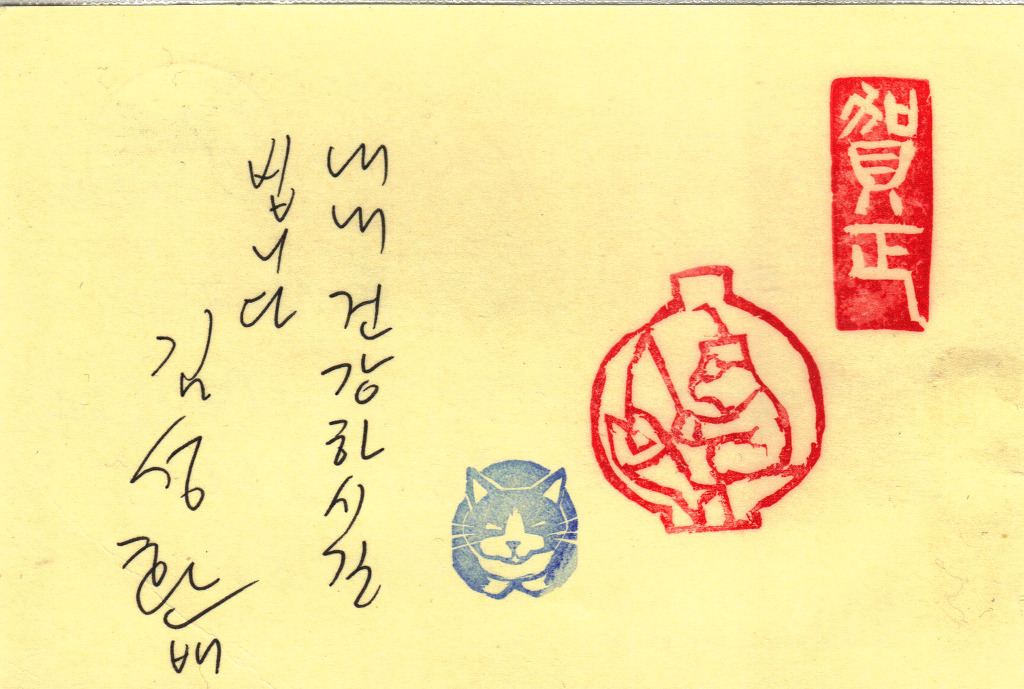 賀正
내내 건강하시길
빕니다
김성환 배